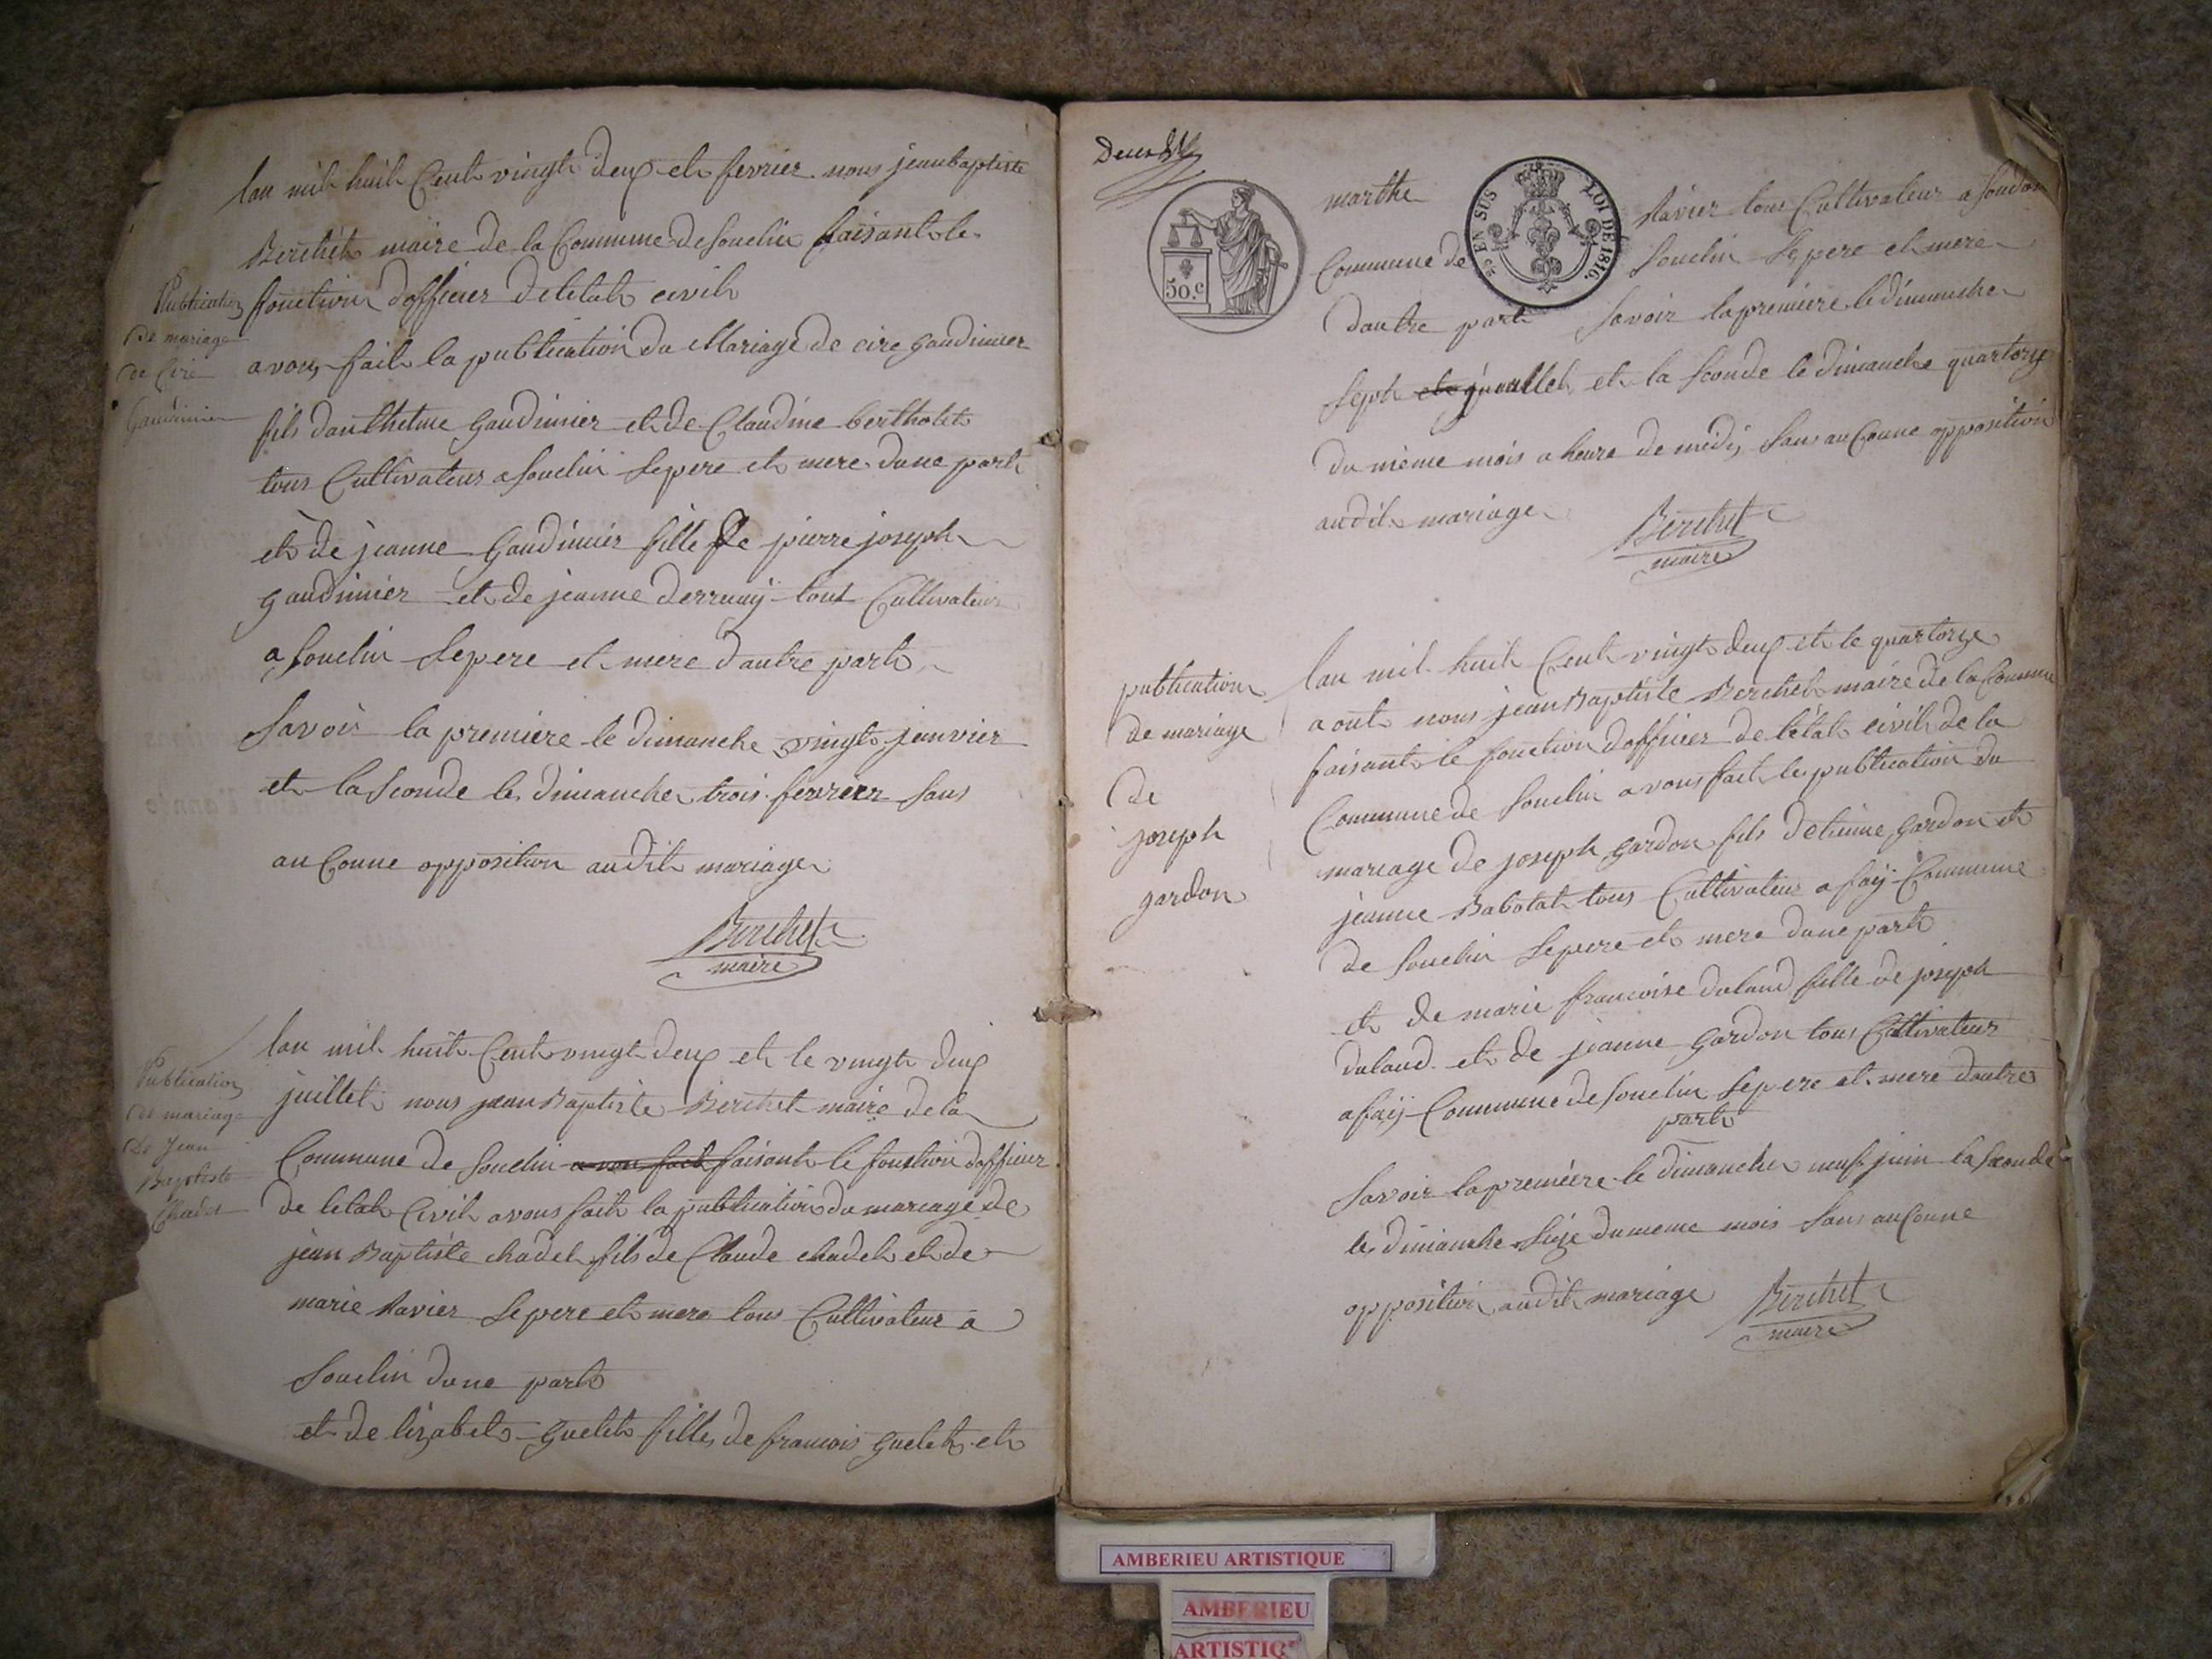 lan mil huit Cent vingt deux et fevrier nous jeanbaptiste
Berthet maire de la Commune de Souclin faisant le
fonction dofficier deletat civil
avons fait la publication du Mariage de cire gaudinier
fils danthelme gaudinier et de Claudine bertholet
tous Cultivateur a Souclin Sepere et mere dune part
et de jeanne gaudinier fille de pierre joseph
gaudinier et de jeanne Derruaij tout Cultivateur
a Souclin Sepere et mere dautre part
Savoir la premiere le dimanche vingt janvier
et la Sconde le dimanche trois fevrier Sans
auConne opposition audit mariage
Berthet
maire
Publication
de mariage
de Ciré
Gaudinier
lan mil huit Cent vingt deux et le vingt deux
juillet nous jean Baptiste Berthet maire dela
Commune de Souclin avon fait faisant le fonction dofficier
de letat Civil avons fait la publication du mareage de
jean Baptiste chadel fils de Claude chadel et de
marie Ravier Sepere et mere tous Cultivateur a
Souclin dune part
et de lizabet guelet fille de francois guelet et
Publication
de mariage
de Jean
Baptiste
Chadel
Deux
50.c
EN SUS
LOI DE 1816.
marthe Ravier tous Cultivateur a Soudon
Commune de Souclin Sepere et mere
dautre part Savoir lapremiere le dimanche
Sept et juillet et la Sconde le dimanche quartorze
du même mois a heure de midij Sans auConne opposition
audit mariage
Berthet
maire
publication
de mariage
de
joseph
gardon
lan mil huit Cent vingt deux et le quartorze
aout nous jean Baptiste Berthet maire de la Commune
faisant le fonction dofficier de létat civil de la
Commune de Souclin avons fait le publication du
mareage de joseph gardon fils detienne gardon et
jeanne Babolat tous Cultivateur a faij Commune
de Souclin Sepere et mere dune part
et de marie francoise duland fille de joseph
duland et de jeanne gardon tous Cultivateur
a faij Commune de Souclin Sepere et mere dautre
part
Savoir lapremiére le dimanche neuf juin la Sconde
le dimanche Sieze du meme mois Sans auConne
opposition audit mariage
Berthet
maire
AMBERIEU ARTISTIQUE
AMBERIEU
ARTISTIQ